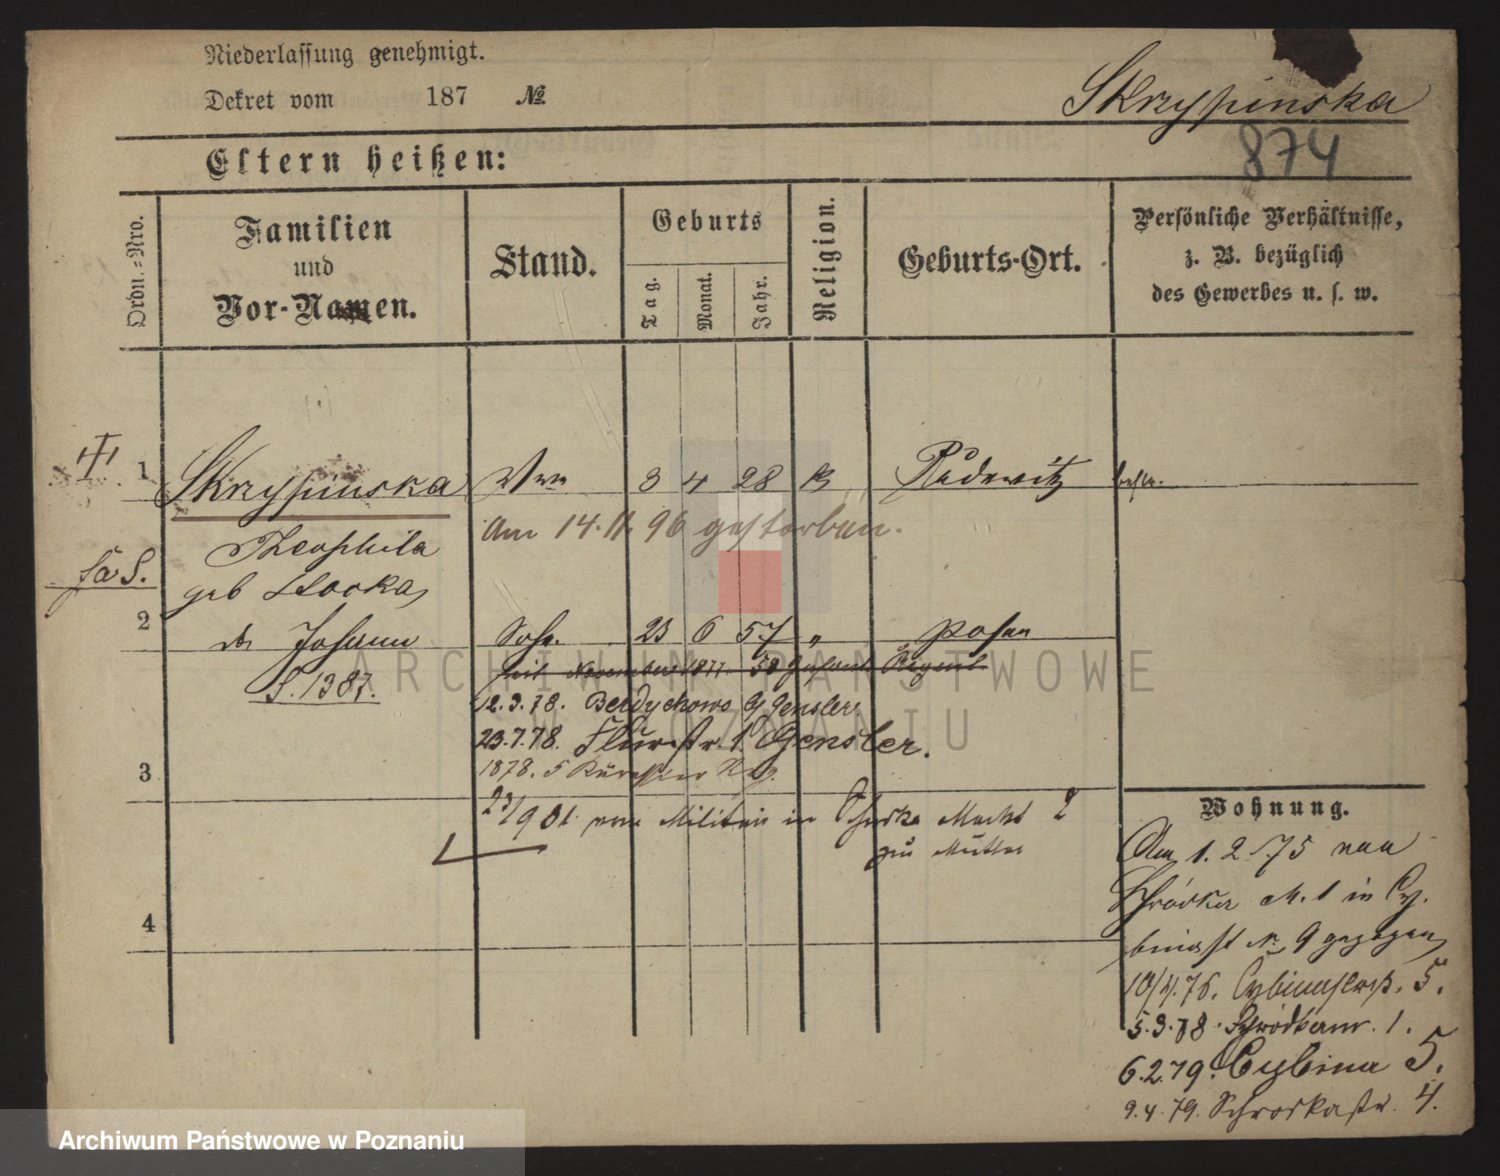 Niederlassung genehmigt.
Dekret vom 187 №
Skrzypinska
874
Eltern heißen:
Ordn.=Nro.
Familien
und
Vor-Namen.
Stand.
Geburts
Tag.
Monat.
Jahr.
Religion.
Geburts-Ort.
Persönliche Verhältnisse,
z. B. bezüglich
des Gewerbes u. s. w.
1 Skrzypinska Wwe 3 4 28 Pudewitz
Am 14. 11. 96 gestorben.
Theophila
geb
2 Johann Sohn 23 6 57 " Posen
seit November 1877 58 Regimt
S. 1387.
12.3.78. Berdychowo 9 Gensler
23.7.78. Flurstr. 1 Gensler.
1878. 5
3
901. vom Militair in Markt 2
zu Mutter
4
Wohnung.
Am 1. 2. 75 von
Schrodka M. 1 in Cy-
binast № 9 gezogen
10/4.76. Cybinastrss. 5.
5.3.78. Schrodkamr. 1.
6.2.79. Cybina 5.
9.4.79. Schrodkastr. 4.
ARCHIWUM PAŃSTWOWE
W POZNANIU
Archiwum Państwowe w Poznaniu